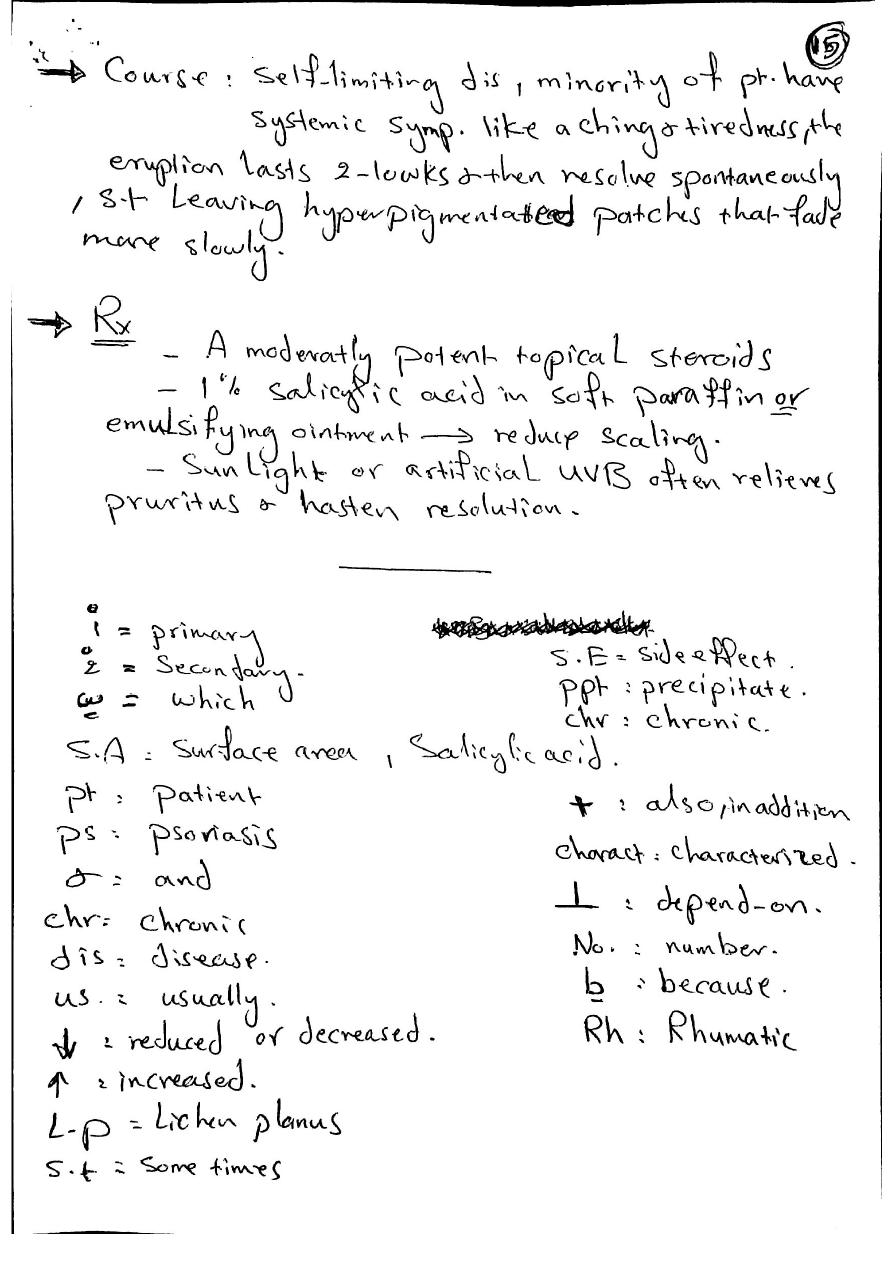 15
→ Course : Self-limiting dis, minority of pt. have
systemic symp. like aching & tiredness, the
eruption lasts 2-10wks & then resolve spontaneously
, s.t Leaving hyperpigmentated patches that fade
more slowly.
→ Rx
- A moderatly potent topical steroids
- 1% salicylic acid in soft paraffin or
emulsifying ointment → reduce scaling.
- Sun Light or artificial UVB often relieves
pruritus & hasten resolution.
1° = primary
2° = Secondary.
ω = which
S.E = side effect.
ppt : precipitate.
chr : chronic.
S.A = Surface area , Salicylic acid.
pt : patient
ps : psoriasis
& = and
chr = chronic
dis = disease.
us. : usually.
↓ : reduced or decreased.
↑ : increased.
L.p = Lichen planus
s.t = Some times
+ : also, in addition
charact : characterized.
⊥ : depend-on.
No. : number.
b : because.
Rh : Rhumatic